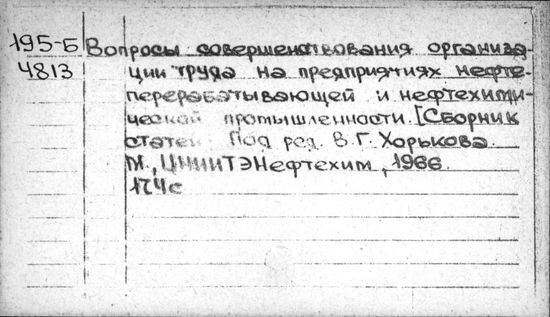 195-Б Вопросы совершенствования организа-
4813 ции труда на предприятиях нефте-
перерабатывающей и нефтехими-
ческой промышленности. [Сборник
статей Под ред. В. Г. Хорькова.
М., ЦНИИТЭНефтехим, 1966
174с